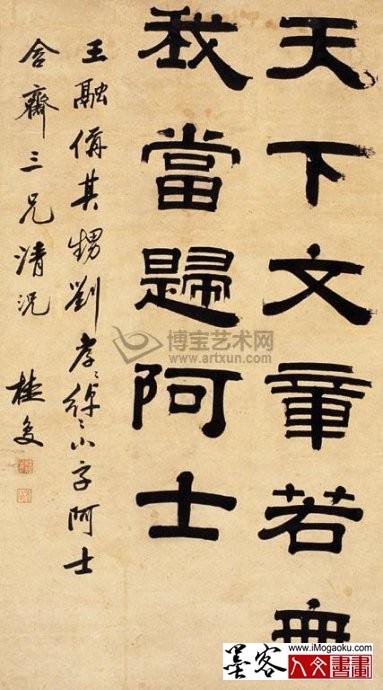 天下文章若無
我當歸阿士
王融偁其甥劉孝〻綽〻小字阿士
含齋三兄清況 桂馥
博宝艺术网
www.artxun.com
墨客
www.iMogaoku.com
人文書畫